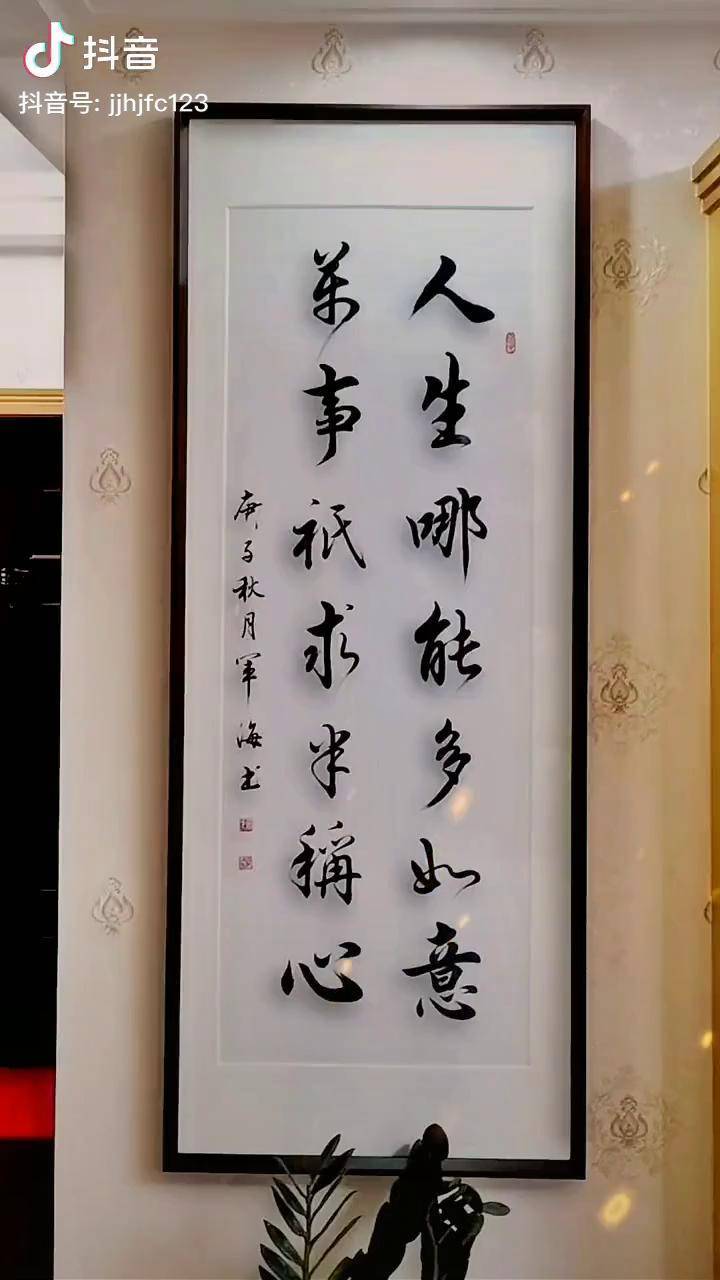 抖音
抖音号: jjhjfc123
人生哪能多如意
万事祇求半稱心
庚子秋月军海书